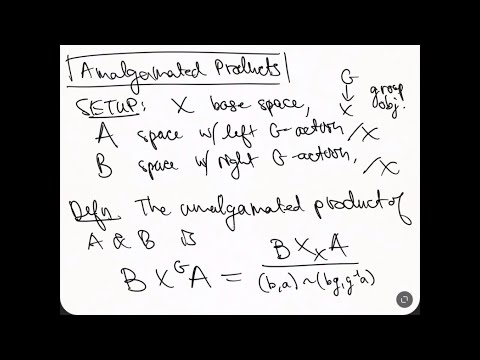 Amalgamated Products
SETUP: X base space, G ↓ X group obj.
A space w/ left G-action /X
B space w/ right G-action, /X
Defn The amalgamated product of
A & B is
B ×^G A = B ×_X A / (b,a) ~ (bg, g⁻¹a)